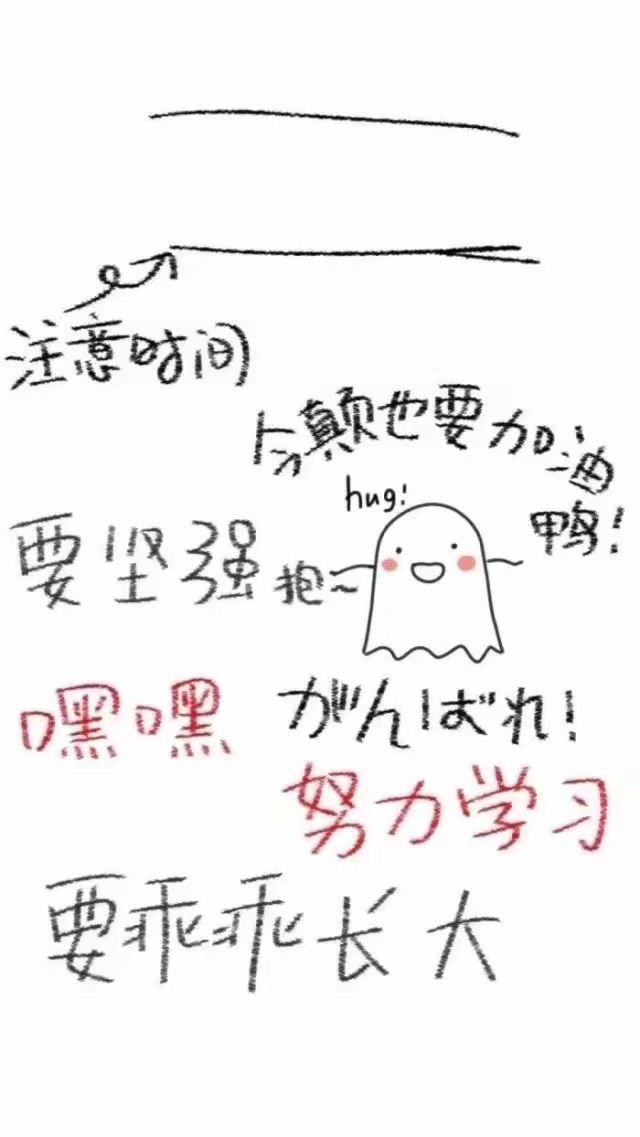 注意时间
今颠也要加油鸭!
hug!
要坚强
抱~
嘿嘿
がんばれ!
努力学习
要乖乖长大